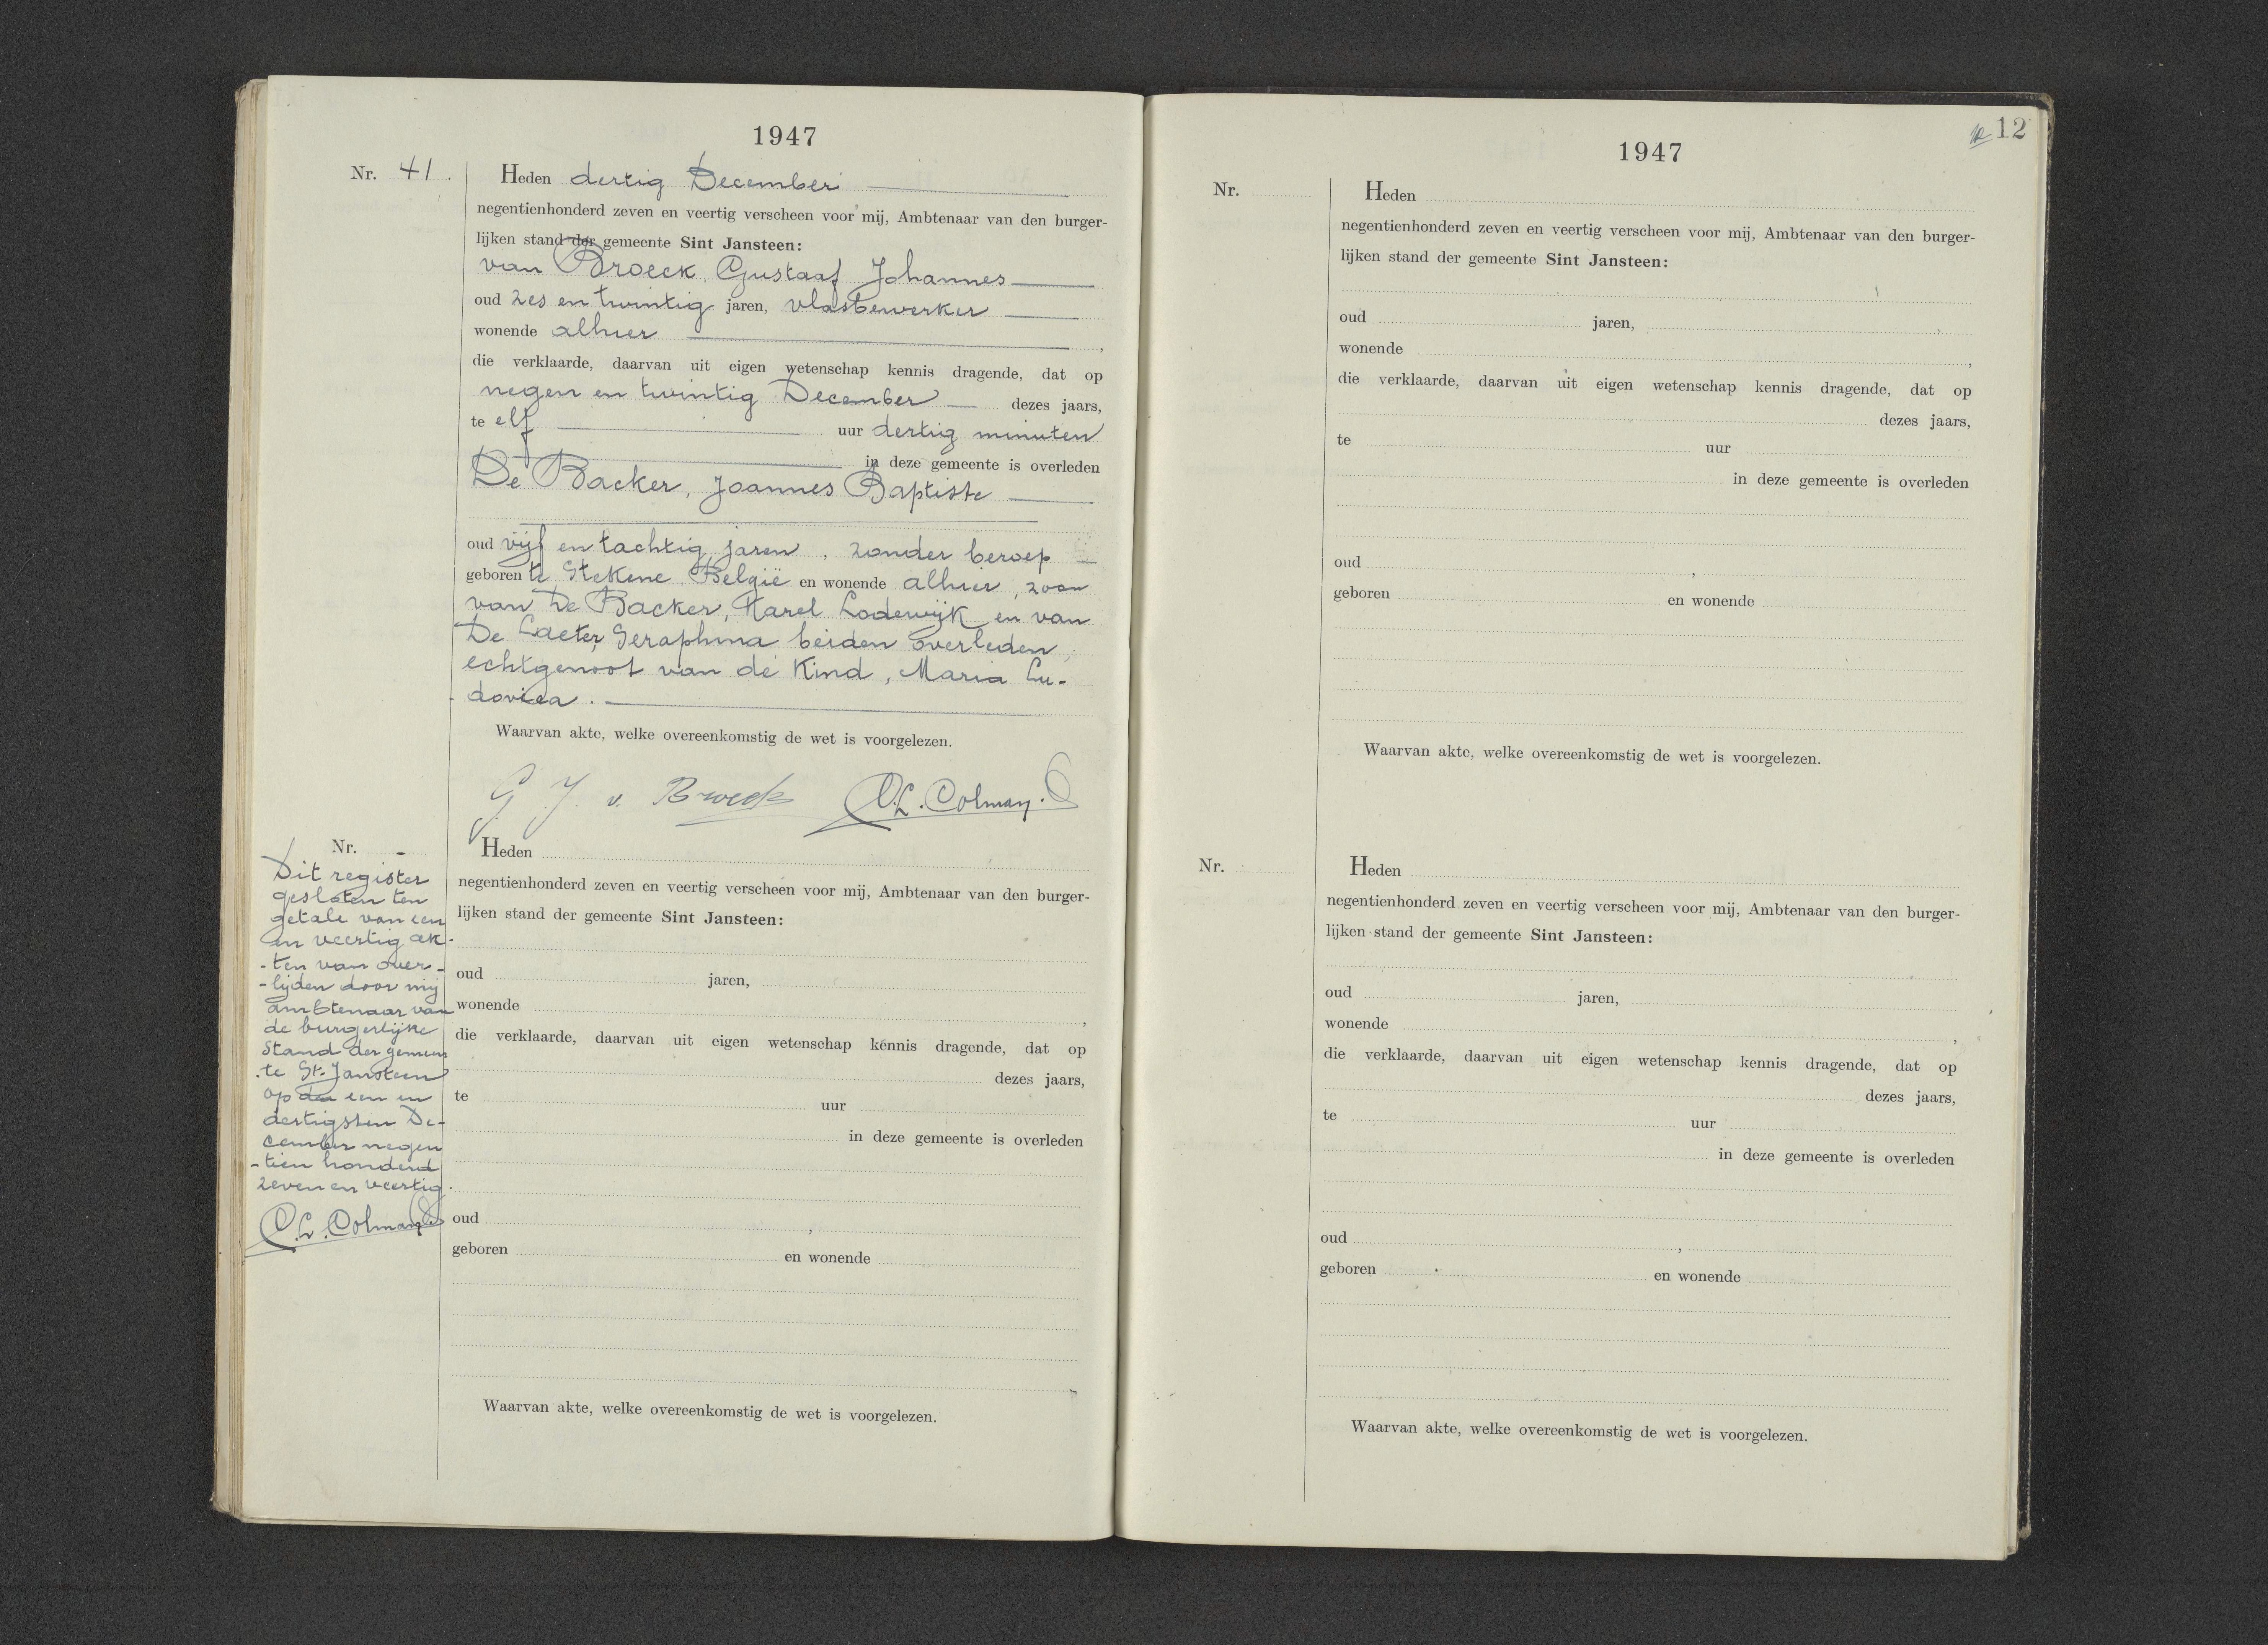 1947
Nr. 41.
Heden dertig December
negentienhonderd zeven en veertig verscheen voor mij, Ambtenaar van den burger-
lijken stand der gemeente Sint Jansteen:
van Broeck, Gustaaf Johannes
oud zes en twintig jaren, vlasbewerker
wonende alhier ,
die verklaarde, daarvan uit eigen wetenschap kennis dragende, dat op
negen en twintig December dezes jaars,
te elf uur dertig minuten
in deze gemeente is overleden
De Backer, Joannes Baptiste
oud vijf en tachtig jaren, zonder beroep
geboren te Stekene België en wonende alhier, zoon
van De Backer, Karel Lodewijk en van
De Laeter, Seraphina beiden overleden,
echtgenoot van de Kind, Maria Lu-
dovica.
Waarvan akte, welke overeenkomstig de wet is voorgelezen.
G. J. v. Broeck C.L. Colman.
Nr. -
Dit register
gesloten ten
getale van een
en veertig ak-
-ten van over-
-lijden door mij
ambtenaar van
de burgerlijke
Stand der gemeen
-te St. Jansteen
op den een en
dertigsten De-
cember negen
-tien honderd
zeven en veertig.
C.L. Colman
Heden
negentienhonderd zeven en veertig verscheen voor mij, Ambtenaar van den burger-
lijken stand der gemeente Sint Jansteen:
oud jaren,
wonende ,
die verklaarde, daarvan uit eigen wetenschap kennis dragende, dat op
dezes jaars,
te uur
in deze gemeente is overleden
oud ,
geboren en wonende
Waarvan akte, welke overeenkomstig de wet is voorgelezen.
12 12
1947
Nr.
Heden
negentienhonderd zeven en veertig verscheen voor mij, Ambtenaar van den burger-
lijken stand der gemeente Sint Jansteen:
oud jaren,
wonende ,
die verklaarde, daarvan uit eigen wetenschap kennis dragende, dat op
dezes jaars,
te uur
in deze gemeente is overleden
oud ,
geboren en wonende
Waarvan akte, welke overeenkomstig de wet is voorgelezen.
Nr.
Heden
negentienhonderd zeven en veertig verscheen voor mij, Ambtenaar van den burger-
lijken stand der gemeente Sint Jansteen:
oud jaren,
wonende ,
die verklaarde, daarvan uit eigen wetenschap kennis dragende, dat op
dezes jaars,
te uur
in deze gemeente is overleden
oud ,
geboren en wonende
Waarvan akte, welke overeenkomstig de wet is voorgelezen.